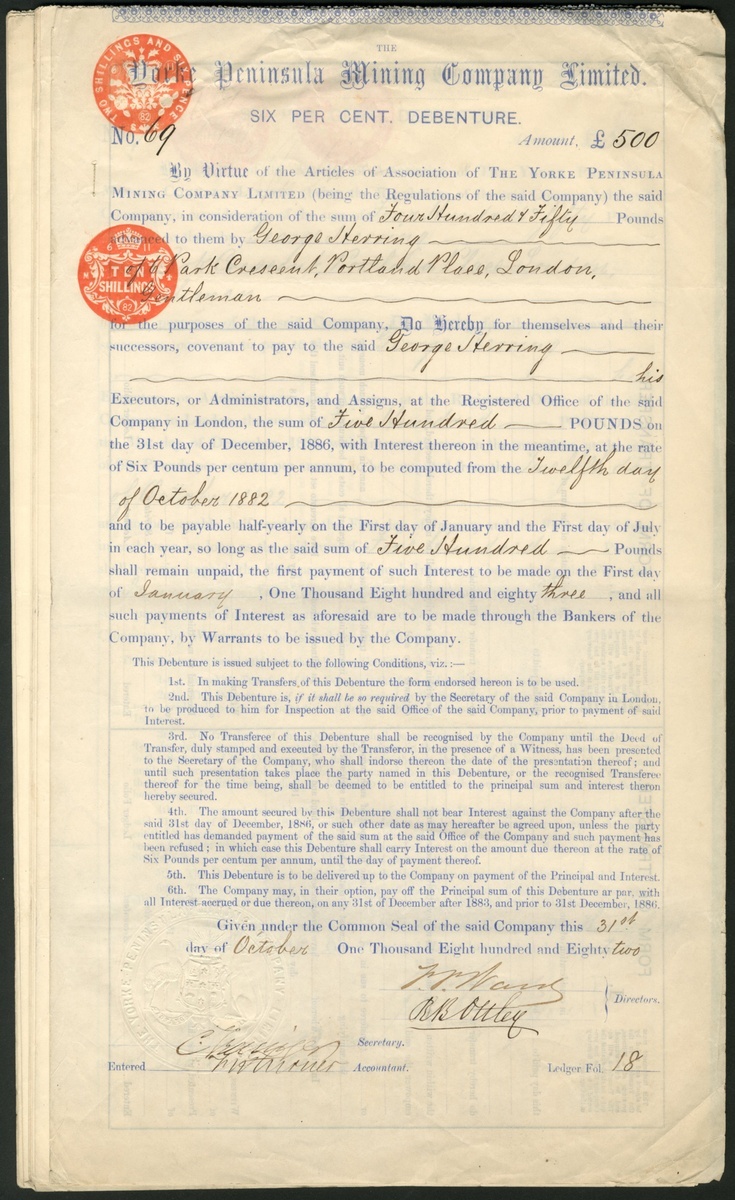 THE
Yorke Peninsula Mining Company Limited.
TWO SHILLINGS AND SIXPENCE
82
SIX PER CENT. DEBENTURE.
No. 69 Amount, £ 500
By Virtue of the Articles of Association of THE YORKE PENINSULA
MINING COMPANY LIMITED (being the Regulations of the said Company) the said
Company, in consideration of the sum of Four Hundred & Fifty Pounds
advanced to them by George Herring
of Park Crescent, Portland Place, London,
Gentleman
6 11
TEN
SHILLINGS
82
for the purposes of the said Company, Do Hereby for themselves and their
successors, covenant to pay to the said George Herring
his
Executors, or Administrators, and Assigns, at the Registered Office of the said
Company in London, the sum of Five Hundred POUNDS on
the 31st day of December, 1886, with Interest thereon in the meantime, at the rate
of Six Pounds per centum per annum, to be computed from the Twelfth day
of October 1882
and to be payable half-yearly on the First day of January and the First day of July
in each year, so long as the said sum of Five Hundred Pounds
shall remain unpaid, the first payment of such Interest to be made on the First day
of January , One Thousand Eight hundred and eighty three , and all
such payments of Interest as aforesaid are to be made through the Bankers of the
Company, by Warrants to be issued by the Company.
This Debenture is issued subject to the following Conditions, viz. :—
1st. In making Transfers of this Debenture the form endorsed hereon is to be used.
2nd. This Debenture is, if it shall be so required by the Secretary of the said Company in London,
to be produced to him for Inspection at the said Office of the said Company, prior to payment of said
Interest.
3rd. No Transferee of this Debenture shall be recognised by the Company until the Deed of
Transfer, duly stamped and executed by the Transferor, in the presence of a Witness, has been presented
to the Secretary of the Company, who shall indorse thereon the date of the presentation thereof ; and
until such presentation takes place the party named in this Debenture, or the recognised Transferee
thereof for the time being, shall be deemed to be entitled to the principal sum and interest thereon
hereby secured.
4th. The amount secured by this Debenture shall not bear Interest against the Company after the
said 31st day of December, 1886, or such other date as may hereafter be agreed upon, unless the party
entitled has demanded payment of the said sum at the said Office of the Company and such payment has
been refused ; in which case this Debenture shall carry Interest on the amount due thereon at the rate of
Six Pounds per centum per annum, until the day of payment thereof.
5th. This Debenture is to be delivered up to the Company on payment of the Principal and Interest.
6th. The Company may, in their option, pay off the Principal sum of this Debenture at par, with
all Interest accrued or due thereon, on any 31st of December after 1883, and prior to 31st December, 1886.
Given under the Common Seal of the said Company this 31st
day of October One Thousand Eight hundred and Eighty two
THE YORKE PENINSULA
R B Ottley
Directors.
Secretary.
Entered Accountant. Ledger Fol. 18